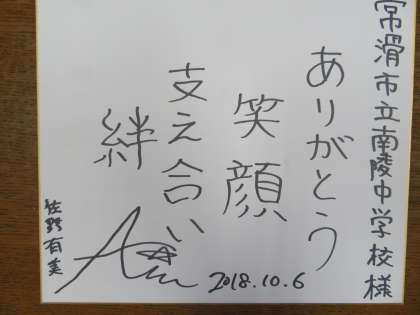 常滑市立南陵中学校様
ありがとう
笑顔
支え合い
絆
佐野有美
2018.10.6